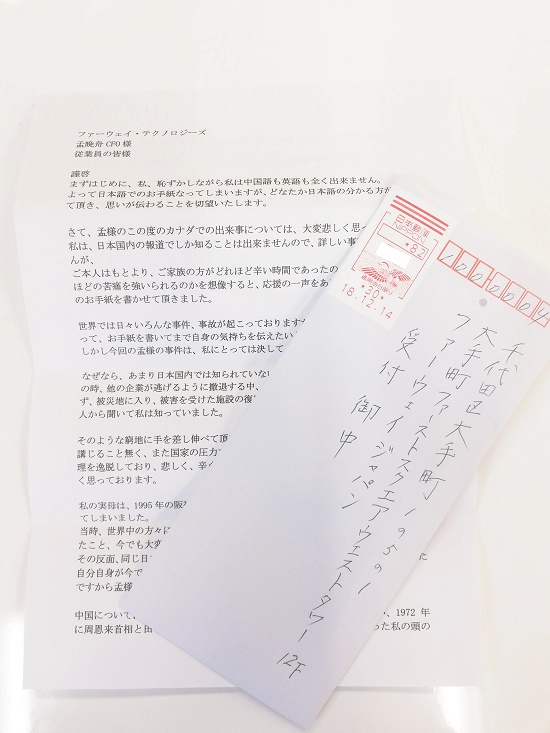 ファーウェイ・テクノロジーズ
孟晩舟 CFO 様
従業員の皆様
謹啓
まずはじめに、私、恥ずかしながら私は中国語も英語も全く出来ません。
よって日本語でのお手紙なってしまいますが、どなたか日本語の分かる方が
て頂き、思いが伝わることを切望いたします。
さて、孟様のこの度のカナダでの出来事については、大変悲しく思っ
私は、日本国内の報道でしか知ることは出来ませんので、詳しい事
んが、
ご本人はもとより、ご家族の方がどれほど辛い時間であったの
ほどの苦痛を強いられるのかを想像すると、応援の一声をあ
のお手紙を書かせて頂きました。
世界では日々いろんな事件、事故が起こっておりますが
って、お手紙を書いてまで自身の気持ちを伝えたい
しかし今回の孟様の事件は、私にとっては決して
なぜなら、あまり日本国内では知られていない
の時、他の企業が逃げるように撤退する中、
ず、被災地に入り、被害を受けた施設の復
人から聞いて私は知っていました。
そのような窮地に手を差し伸べて頂
講じること無く、また国家の圧力
理を逸脱しており、悲しく、辛
く思っております。
私の実母は、1995 年の阪
てしまいました。
当時、世界中の方々に
たこと、今でも大変
その反面、同じ日
自分自身が今で
ですから孟様
中国について、
、1972 年
に周恩来首相と田
った私の頭の
日本郵便
NIPPON
*82
*30*
18.12.14
千代田区大手町
大手町ファーストスクエアウエストタワー
12F
ファーウェイジャパン
受付 御中